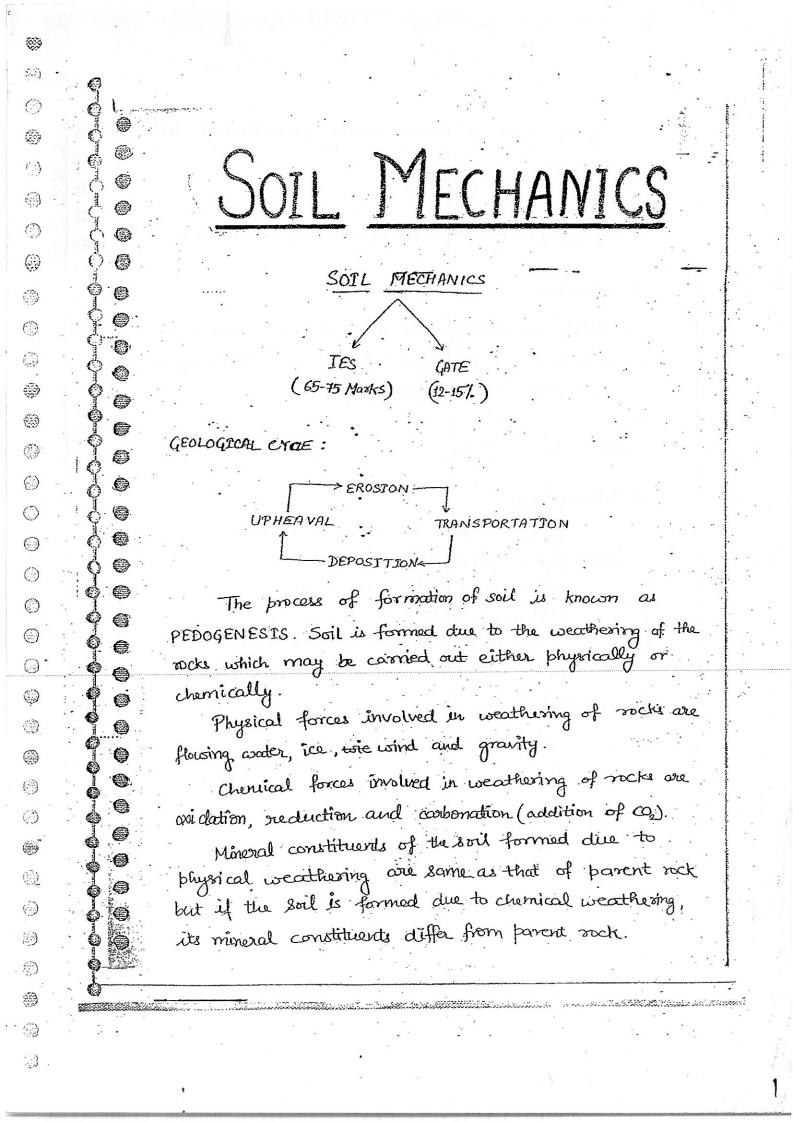 SOIL MECHANICS
SOIL MECHANICS
IES GATE
(65-75 Marks) (12-15%)
GEOLOGICAL CYCLE :
EROSION
UPHEAVAL TRANSPORTATION
DEPOSITION
The process of formation of soil is known as
PEDOGENESIS. Soil is formed due to the weathering of the
rocks which may be carried out either physically or
chemically.
Physical forces involved in weathering of rocks are
flowing water, ice, wind and gravity.
Chemical forces involved in weathering of rocks are
oxidation, reduction and carbonation (addition of CO₂).
Mineral constituents of the soil formed due to
physical weathering are same as that of parent rock
but if the soil is formed due to chemical weathering,
its mineral constituents differ from parent rock.
1